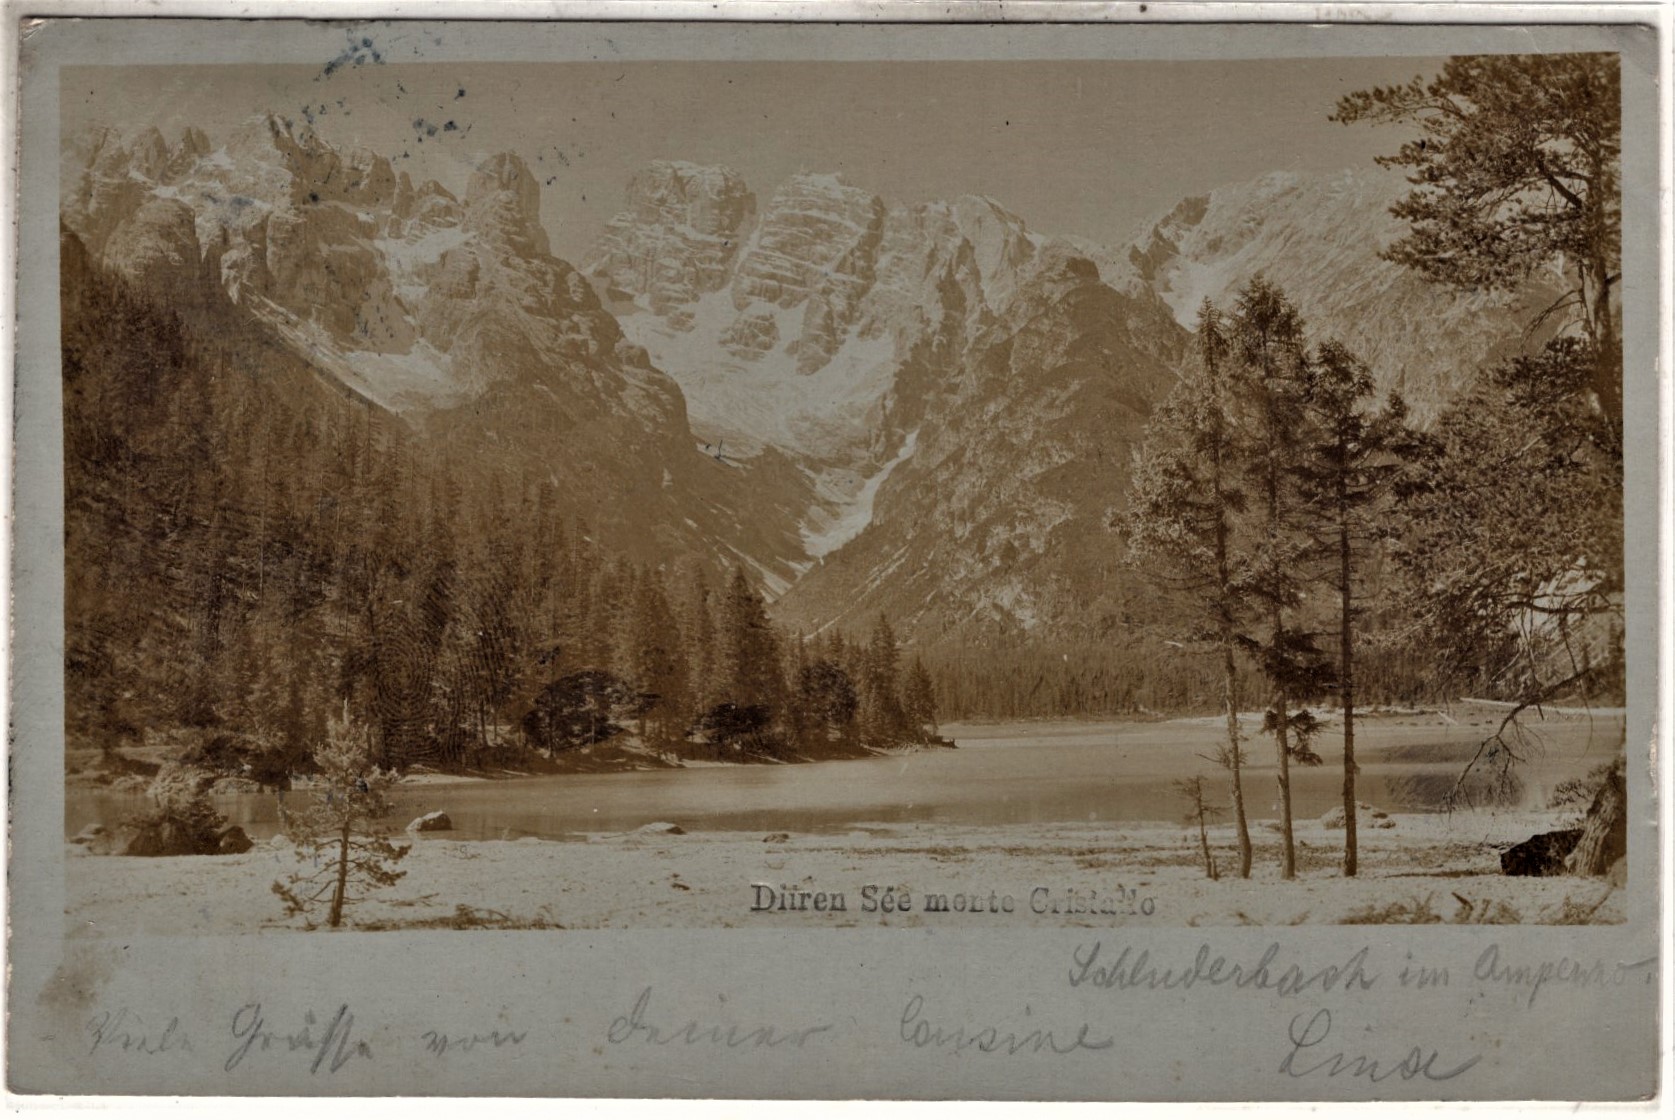 Düren Sée monte Cristallo
Schluderbach im Ampezzo.
Viele Grüsse von deiner Cousine Lina